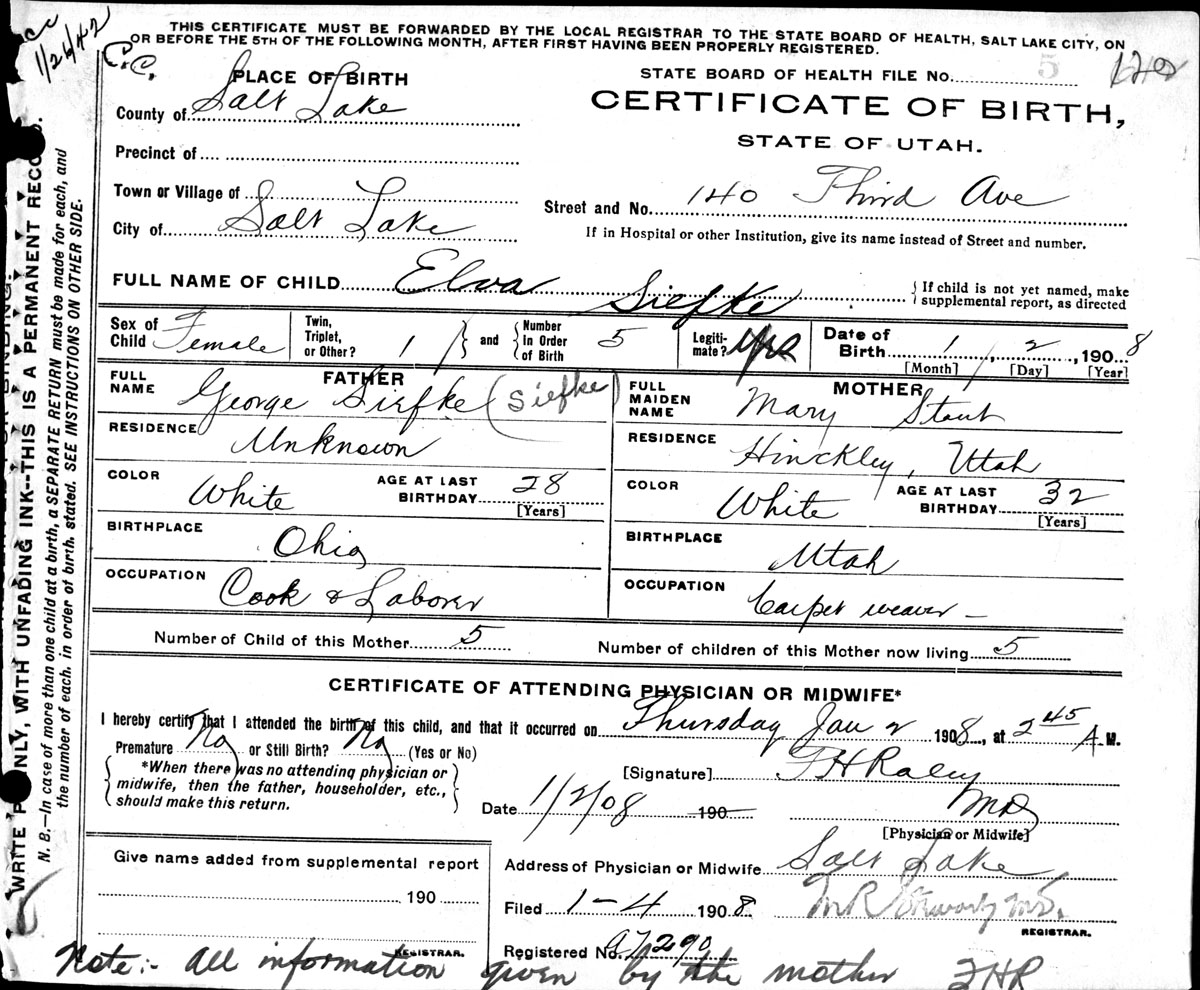 THIS CERTIFICATE MUST BE FORWARDED BY THE LOCAL REGISTRAR TO THE STATE BOARD OF HEALTH, SALT LAKE CITY, ON
OR BEFORE THE 5TH OF THE FOLLOWING MONTH, AFTER FIRST HAVING BEEN PROPERLY REGISTERED.
1/26/42
C.C.
PLACE OF BIRTH
STATE BOARD OF HEALTH FILE No. 5
County of Salt Lake
CERTIFICATE OF BIRTH,
STATE OF UTAH.
Precinct of
Town or Village of
Street and No. 140 Third Ave
City of Salt Lake
If in Hospital or other Institution, give its name instead of Street and number.
FULL NAME OF CHILD Elva Siefke
If child is not yet named, make
supplemental report, as directed
Sex of Child Female
Twin, Triplet, or Other? 1
and Number In Order of Birth 5
Legitimate? Yes
Date of Birth 1 / 2, 1908
[Month] [Day] [Year]
FATHER
FULL NAME George Siefke (Siefke)
RESIDENCE Unknown
COLOR White AGE AT LAST BIRTHDAY 28
[Years]
BIRTHPLACE Ohio
OCCUPATION Cook & Laborer
MOTHER
FULL MAIDEN NAME Mary Stout
RESIDENCE Hinckley, Utah
COLOR White AGE AT LAST BIRTHDAY 32
[Years]
BIRTHPLACE Utah
OCCUPATION Carpet weaver -
Number of Child of this Mother 5 Number of children of this Mother now living 5
CERTIFICATE OF ATTENDING PHYSICIAN OR MIDWIFE*
I hereby certify that I attended the birth of this child, and that it occurred on Thursday Jan 2 1908, at 2 45 A.M.
Premature No or Still Birth? No (Yes or No)
*When there was no attending physician or
midwife, then the father, householder, etc.,
should make this return.
[Signature] T H Raley
Date 1/2/08 190 MD
[Physician or Midwife]
Give name added from supplemental report
190
REGISTRAR.
Address of Physician or Midwife Salt Lake
Filed 1-4 1908
REGISTRAR.
Registered No. 290
Note:- All information given by the mother THR
WRITE PLAINLY, WITH UNFADING INK--THIS IS A PERMANENT RECORD.
N. B.—In case of more than one child at a birth, a SEPARATE RETURN must be made for each, and
the number of each, in order of birth, stated. SEE INSTRUCTIONS ON OTHER SIDE.